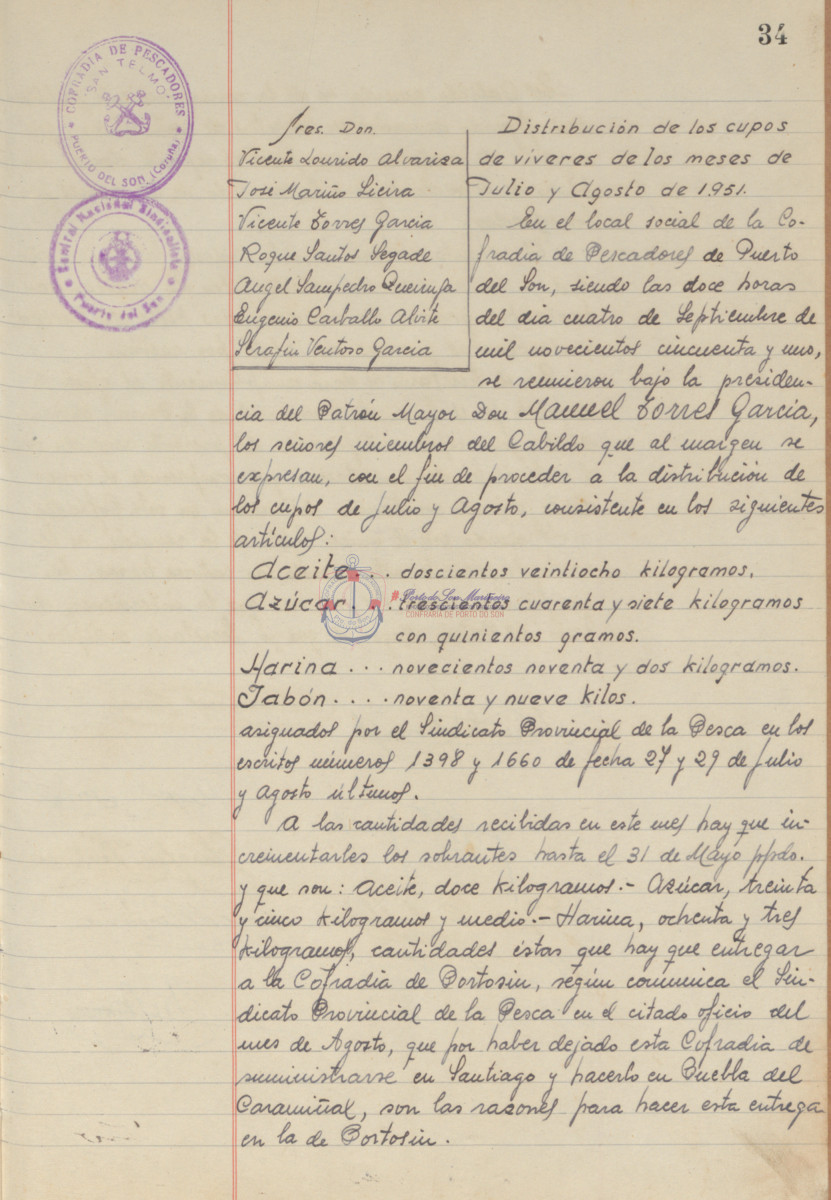 34
COFRADIA DE PESCADORES
"SAN TELMO"
PUERTO DEL SON (Coruña)
Central Nacional Sindicalista
Puerto del Son
Sres. Don.
Vicente Lourido Alvariza
José Mariño Lieira
Vicente Torres Garcia
Roque Santos Segade
Angel Sampedro
Eugenio Carballo Alvite
Serafin Ventoso Garcia
Distribución de los cupos
de víveres de los meses de
Julio y Agosto de 1951.
En el local social de la Co-
fradia de Pescadores de Puerto
del Son, siendo las doce horas
del dia cuatro de Septiembre de
mil novecientos cincuenta y uno,
se reunieron bajo la presiden-
cia del Patrón Mayor Don Manuel Torres Garcia,
los señores miembros del Cabildo que al margen se
expresan, con el fin de proceder a la distribución de
los cupos de Julio y Agosto, consistente en los siguientes
artículos:
Aceite... doscientos veintiocho kilogramos.
Azúcar... trescientos cuarenta y siete kilogramos
con quinientos gramos.
Harina ... novecientos noventa y dos kilogramos.
Jabón.... noventa y nueve kilos.
asignados por el Sindicato Provincial de la Pesca en los
escritos números 1398 y 1660 de fecha 27 y 29 de Julio
y Agosto últimos.
A las cantidades recibidas en este mes hay que in-
crementarles los sobrantes hasta el 31 de Mayo ppdo.
y que son: Aceite, doce kilogramos.- Azúcar, treinta
y cinco kilogramos y medio.- Harina, ochenta y tres
kilogramos, cantidades éstas que hay que entregar
a la Cofradia de Portosin, según comunica el Sin-
dicato Provincial de la Pesca en el citado oficio del
mes de Agosto, que por haber dejado esta Cofradia de
suministrarse en Santiago y hacerlo en Puebla del
Caramiñal, son las razones para hacer esta entrega
en la de Portosin.
Porto do Son Mariñeiro
CONFRARÍA DE PORTO DO SON